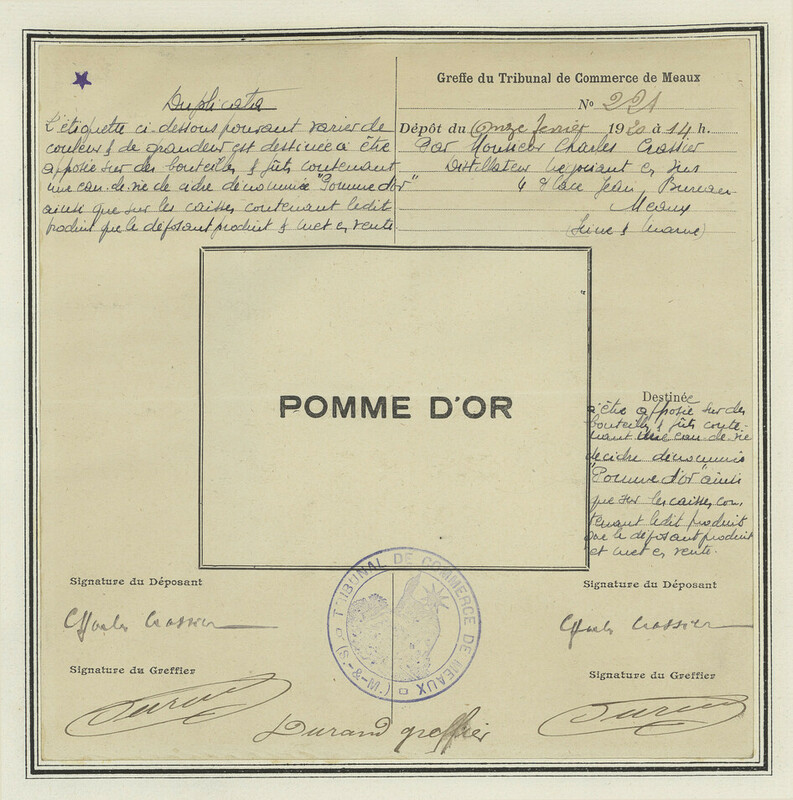 Duplicata
L'étiquette ci-dessous pouvant varier de
couleur & de grandeur est destinée à être
apposée sur des bouteilles & fûts contenant
une eau-de-vie de cidre dénommée "Pomme d'or"
ainsi que sur les caisses contenant ledit
produit que le déposant produit & met en vente
Greffe du Tribunal de Commerce de Meaux
No 221
Dépôt du Onze février 1920 à 14 h.
Par Monsieur Charles Crossier
Distillateur négociant en
4 Place Jean Bureau
Meaux
(Seine & Marne)
POMME D'OR
Destinée
à être apposée sur des
bouteilles & fûts conte-
nant une eau-de-vie
de cidre dénommée
"Pomme d'or" ainsi
que sur les caisses con-
tenant ledit produit
que le déposant produit
et met en vente.
Signature du Déposant
Charles Crossier
Signature du Greffier
Durand
TRIBUNAL DE COMMERCE DE MEAUX
(S.-&-M.)
Durand greffier
Signature du Déposant
Charles Crossier
Signature du Greffier
Durand